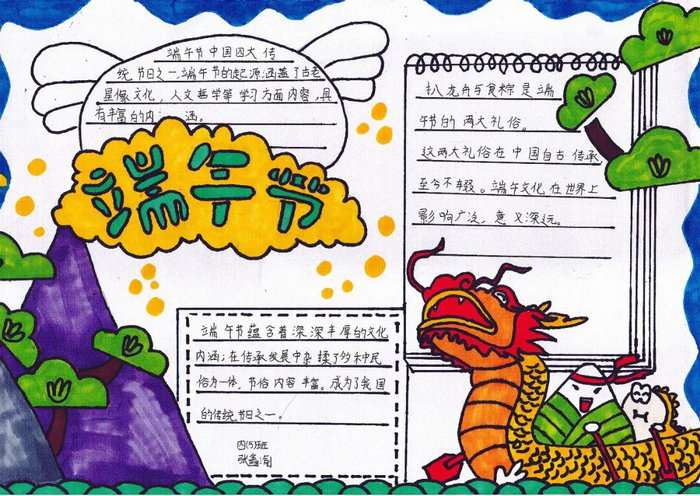 端午节中国四大传
统节日之一,端午节的起源涵盖了古老
星像文化,人文哲学等学习方面内容,具
有丰富的内 涵。
端午节
扒龙舟与食粽是端
午节的两大礼俗。
这两大礼俗在中国自古传承
至今不辍。端午文化在世界上
影响广泛,意义深远。
端午节蕴含着深深丰厚的文化
内涵;在传承发展中杂揉了多种民
俗为一体,节俗内容丰富。成为了我国
的传统节日之一。
四(5)班
张鑫